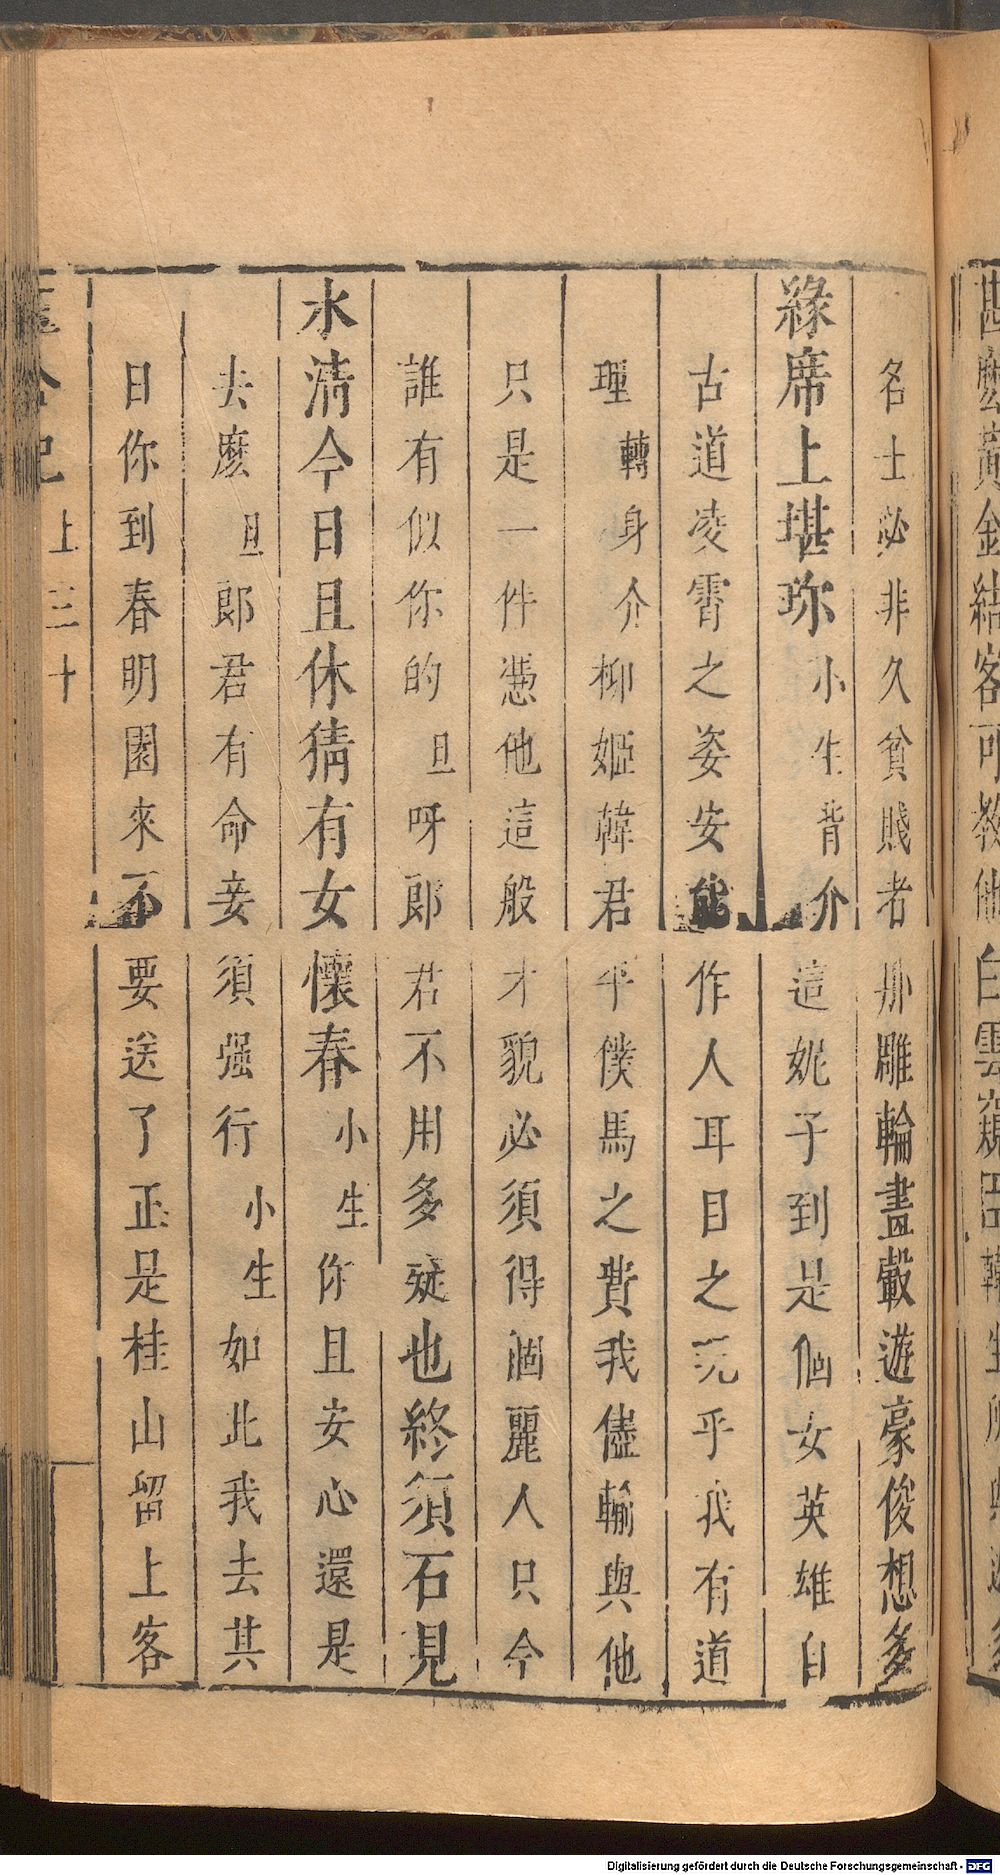 勘麽黄金結客可教他白雲窺
名士必非久貧賤者那雕輪畫轂遊豪俊想多
緣席上堪珎小生背介這妮子到是個女英雄自
古道凌霄之姿安能作人耳目之玩乎我有道
理轉身介柳姬韓君平僕馬之費我儘輸與他
只是一件慿他這般才貌必須得個麗人只今
誰有似你的旦呀郎君不用多疑也終須石見
水清今日且休猜有女懷春小生你且安心還是
去麽旦郎君有命妾須强行小生如此我去其
日你到春明園來不要送了正是桂山留上客
上三十
Digitalisierung gefördert durch die Deutsche Forschungsgemeinschaft - DFG